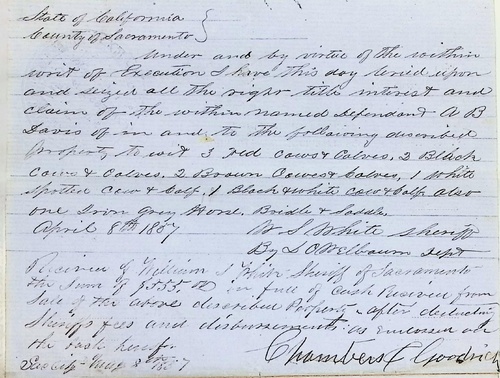 State of California }
County of Sacramento }
Under and by virtue of the within
writ of Execution I have this day levied upon
and seized all the right title interest and
claim of the within named Defendant A B
Davis of in and to the following described
property to wit 3 red Cows & Calves. 2 Black
Cows & Calves. 2 Brown Cowes & Calves, 1 White
Spotted Cow & Calf. 1 Black & white Cow & Calf also
one Iron Grey Horse. Bridle & Saddle.
April 8th 1857
W S White Sheriff
By L C Welbourn Dept
Received of William S White Sheriff of Sacramento
the Sum of $555. in full of Cash Received from
Sale of the above described Property - after deducting
Sheriffs fees and disbursements as endorsed on
the back hereof.
Sac City May 8th 1857
Chambers & Goodrich